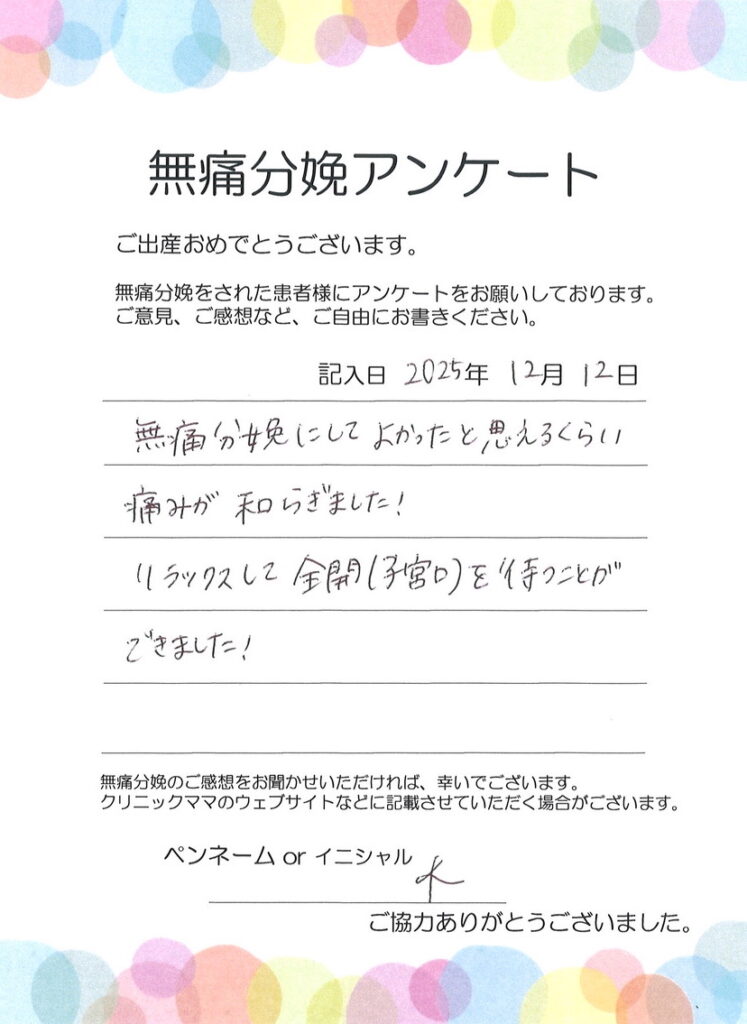 無痛分娩アンケート
ご出産おめでとうございます。
無痛分娩をされた患者様にアンケートをお願いしております。
ご意見、ご感想など、ご自由にお書きください。
記入日 2025年 12月 12日
無痛分娩にして よかったと思えるくらい
痛みが 和らぎました!
リラックスして 全開(子宮口)を待つことが
できました!
無痛分娩のご感想をお聞かせいただければ、幸いでございます。
クリニックママのウェブサイトなどに記載させていただく場合がございます。
ペンネーム or イニシャル
K
ご協力ありがとうございました。